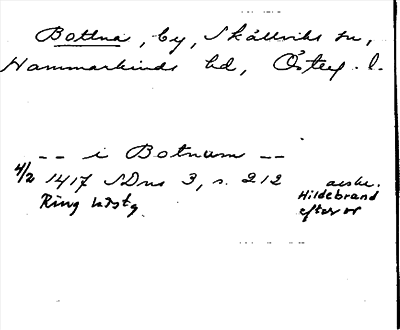 Bottna, by, Skällviks sn,
Hammarkinds hd, Östergl. l.
-- i Botnum --
4/2 1417 SDns 3, s. 212 avskr.
Ring hdstg. Hildebrand
efter or